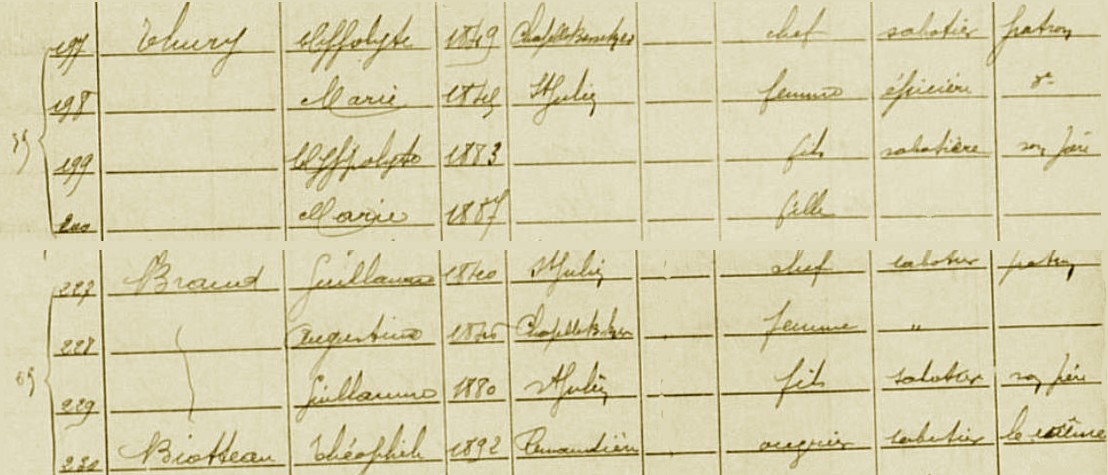 197 Thury Hyppolyte 1849 chef sabotier patron
198 Marie St Julien femme épicière do
199 Hyppolyte 1883 fils sabotière son père
200 Marie 1887 fille
227 Braud Guillaume 1840 St Julien chef sabotier patron
228 Augustine femme "
229 Guillaume 1880 St Julien fils sabotier son père
230 Biotteau Théophile 1892 ouvrier sabotier le même